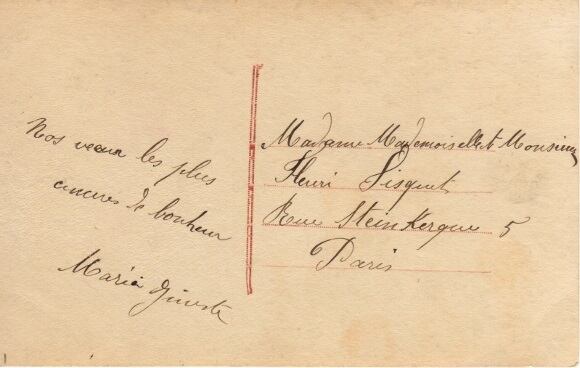 Nos vœux les plus
sincères de bonheur
Maria Gineste
Madame Mademoiselle et Monsieur
Henri Sisquet
Rue Steinkerque 5
Paris